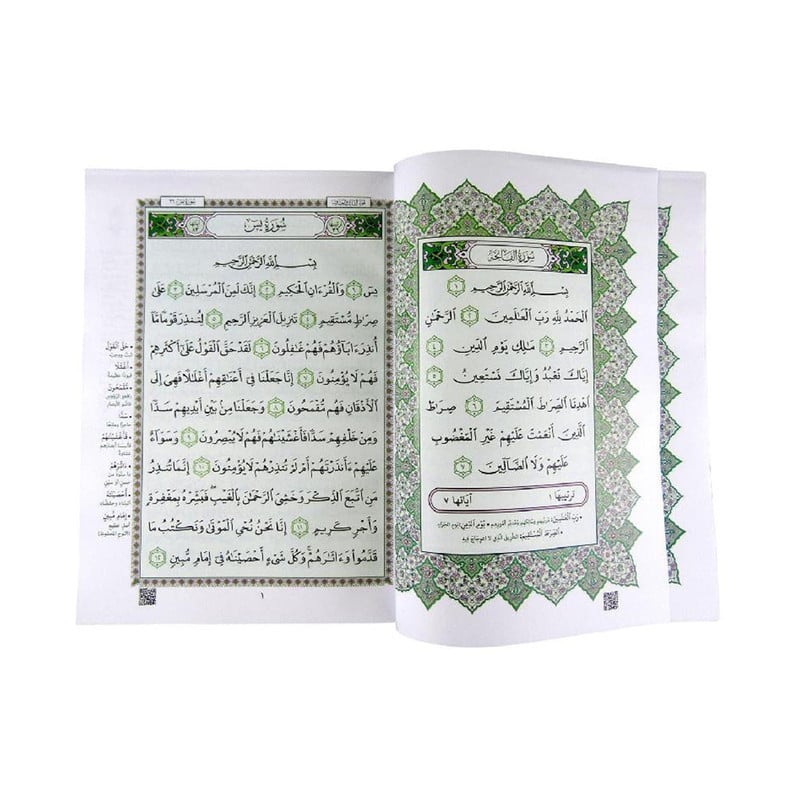 سُورَةُ الفَاتِحَةِ
بِسْمِ اللَّهِ الرَّحْمَٰنِ الرَّحِيمِ ١
الْحَمْدُ لِلَّهِ رَبِّ الْعَالَمِينَ ٢ الرَّحْمَٰنِ
الرَّحِيمِ ٣ مَالِكِ يَوْمِ الدِّينِ ٤
إِيَّاكَ نَعْبُدُ وَإِيَّاكَ نَسْتَعِينُ ٥
اهْدِنَا الصِّرَاطَ الْمُسْتَقِيمَ ٦ صِرَاطَ
الَّذِينَ أَنْعَمْتَ عَلَيْهِمْ غَيْرِ الْمَغْضُوبِ
عَلَيْهِمْ وَلَا الضَّالِّينَ ٧
ترتيبها ١ آياتها ٧
سُورَةُ يسٓ ٣٦
سُورَةُ يسٓ
بِسْمِ اللَّهِ الرَّحْمَٰنِ الرَّحِيمِ
يسٓ ١ وَالْقُرْءَانِ الْحَكِيمِ ٢ إِنَّكَ لَمِنَ الْمُرْسَلِينَ ٣ عَلَىٰ
صِرَاطٍ مُّسْتَقِيمٍ ٤ تَنزِيلَ الْعَزِيزِ الرَّحِيمِ ٥ لِتُنذِرَ قَوْمًا مَّا
أُنذِرَ ءَابَاؤُهُمْ فَهُمْ غَافِلُونَ ٦ لَقَدْ حَقَّ الْقَوْلُ عَلَىٰ أَكْثَرِهِمْ
فَهُمْ لَا يُؤْمِنُونَ ٧ إِنَّا جَعَلْنَا فِي أَعْنَاقِهِمْ أَغْلَالًا فَهِيَ إِلَى
الْأَذْقَانِ فَهُم مُّقْمَحُونَ ٨ وَجَعَلْنَا مِن بَيْنِ أَيْدِيهِمْ سَدًّا
وَمِنْ خَلْفِهِمْ سَدًّا فَأَغْشَيْنَاهُمْ فَهُمْ لَا يُبْصِرُونَ ٩ وَسَوَاءٌ
عَلَيْهِمْ ءَأَنذَرْتَهُمْ أَمْ لَمْ تُنذِرْهُمْ لَا يُؤْمِنُونَ ١٠ إِنَّمَا تُنذِرُ
مَنِ اتَّبَعَ الذِّكْرَ وَخَشِيَ الرَّحْمَٰنَ بِالْغَيْبِ فَبَشِّرْهُ بِمَغْفِرَةٍ
وَأَجْرٍ كَرِيمٍ ١١ إِنَّا نَحْنُ نُحْيِ الْمَوْتَىٰ وَنَكْتُبُ مَا
قَدَّمُوا وَءَاثَارَهُمْ وَكُلَّ شَيْءٍ أَحْصَيْنَاهُ فِي إِمَامٍ مُّبِينٍ ١٢
١
حَقَّ الْقَوْلُ
أَغْلَالًا
مُّقْمَحُونَ
سَدًّا
فَأَغْشَيْنَاهُمْ
ءَاثَارَهُمْ
أَحْصَيْنَاهُ
إِمَامٍ مُّبِينٍ